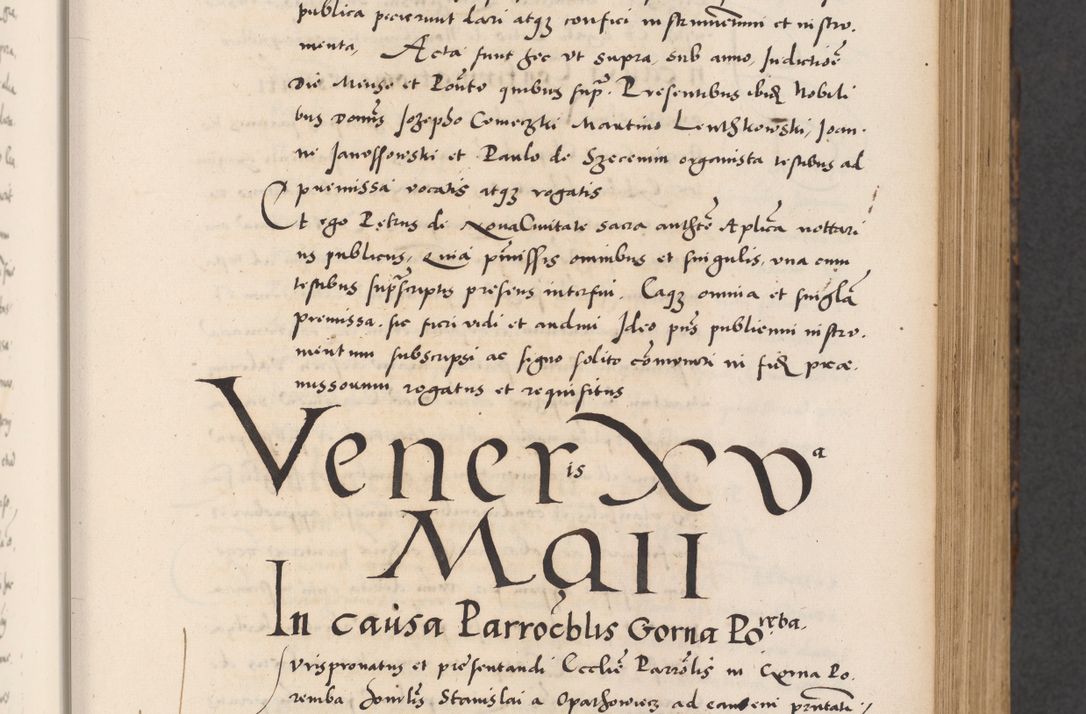 publica petierunt dari atqz confici instrumentum et instro-
menta, Acta sunt hec ut supra sub anno, Indictiōe
Die Mense et Pontu quibus supᵃ. Presentibus ibidē Nobili
bus Domīs Jozepho Comeczki Martino Lenthkowski, Joan-
ne Janossowski et Paulo de Szeceniu organista testibus ad
premissa vocatis atqz rogatis
Et ego Petrus de NovaCivitate sacra authtē Aplīca nottari
us publicus, Quia pmissis omnibus et singulis, una cum
testibus supscriptis presens interfui, Eaqz omnia et singla
premissa, sic fieri vidi et audivi Ideo pns publicum instro-
mentum subscripsi ac signo solito comunivi in fidē prae-
missorum rogatus et requisitus
Veneris XVᵃ
Maii
In causa Parrochlis Gorna Poremba.
Jurispronatus et presentandi Ecclie Parrochlis in Gorna Po-
remba Stanislai a Oparhowiecz ad eandem pntati